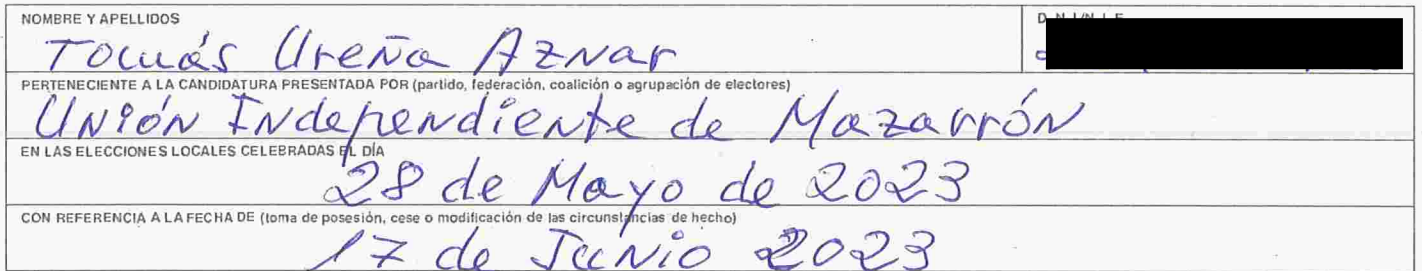 NOMBRE Y APELLIDOS
Tomás Ureña Aznar
PERTENECIENTE A LA CANDIDATURA PRESENTADA POR (partido, federación, coalición o agrupación de electores)
Unión Independiente de Mazarrón
EN LAS ELECCIONES LOCALES CELEBRADAS EL DÍA
28 de Mayo de 2023
CON REFERENCIA A LA FECHA DE (toma de posesión, cese o modificación de las circunstancias de hecho)
17 de Junio 2023